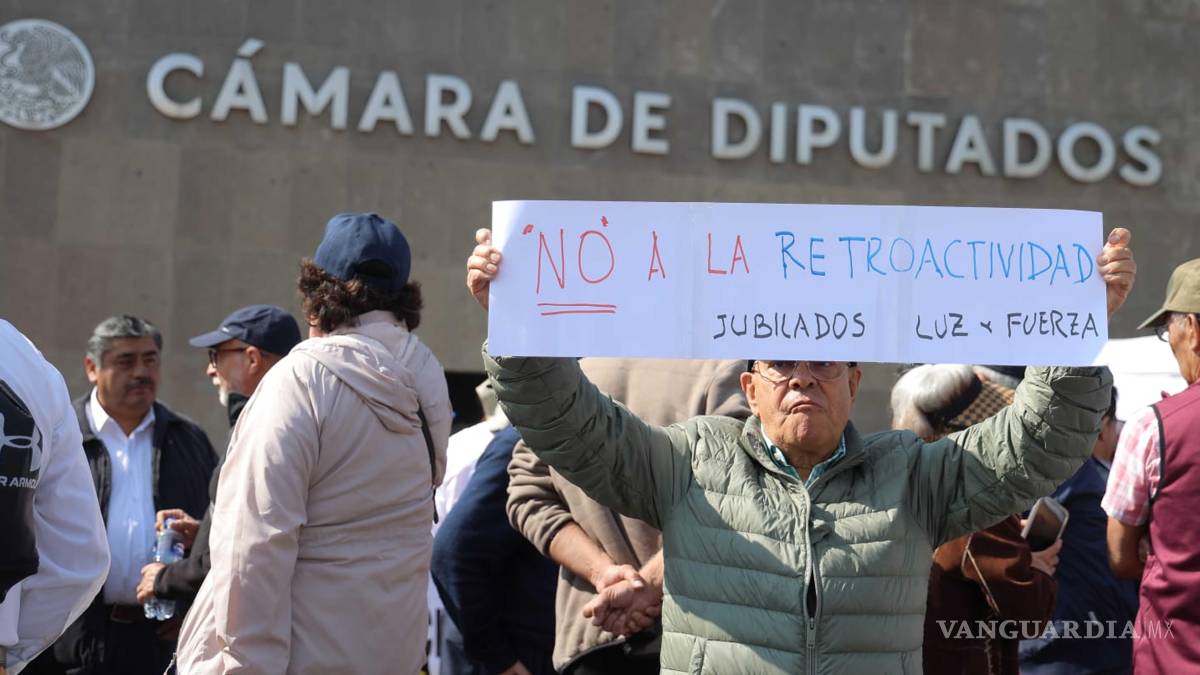 CÁMARA DE DIPUTADOS
"NO" A LA RETROACTIVIDAD
JUBILADOS LUZ Y FUERZA
R ARMOUR
VANGUARDIA MX